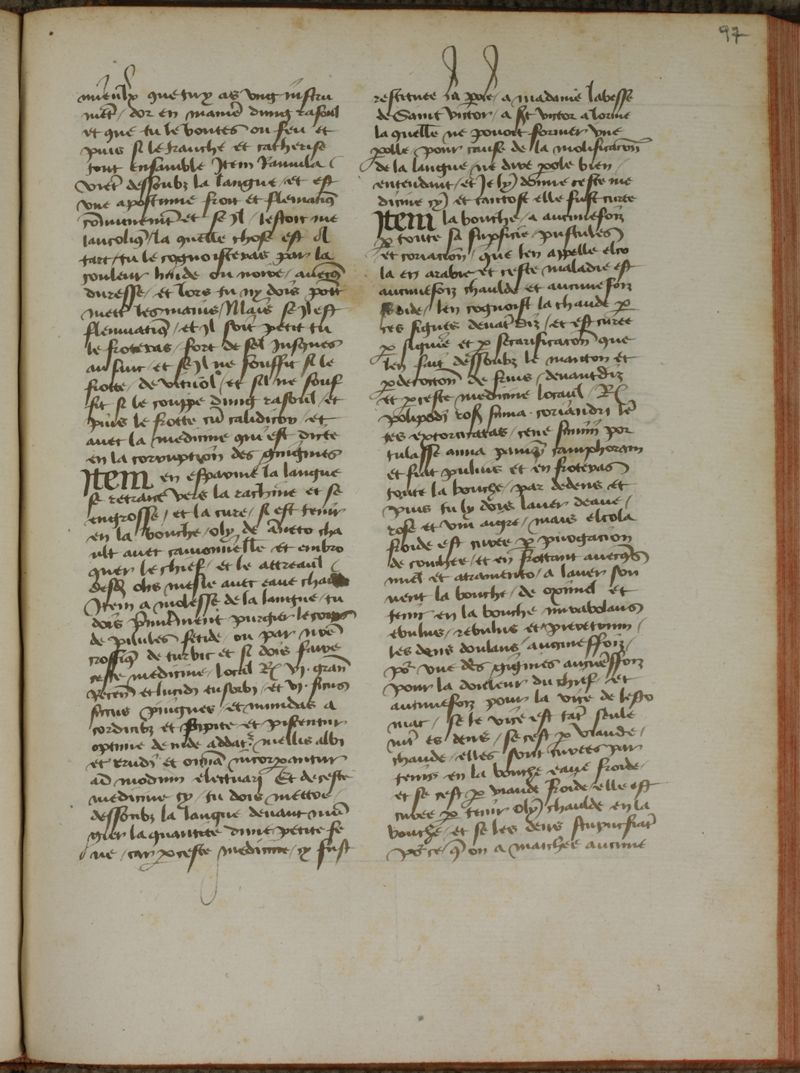 97
mieulx que tu y as ung instru
met dor en maniere dung rasouer
et que tu le boutes ou feu et
puis si le trauche et catherise
tout ensamble Item Ranula
vient dessoubz la langue et est
une apostume froit et flematiq
communemēt et se il lestoit me
lancoliq la quelle chose est il
tart tu le cognoisteras par la
couleur humide ou noire avecqs
duresse et lors tu ny dois point
mettre les mains Mais se il est
flemmatiq et il soit petit tu
le froteras fort de sel jusques
au sanc et se il ne souffit si le
frotte de vitriol et sil ne souf
fit si le couppe dung rasouer et
puis le frotte cu calidicon et
avec la medicine qui est dicte
en la corruption des gingives
Item en espasme la langue
se retrait vers la rachine et se
engrosse et la cure si est tenir
en la bouche oly de aneto cha
ult avec camomille et embro
quer le chief et le
desd ohs mesle avec eaue chaude
Item a molesse de la langue tu
dois premieremēt purgier le corps
de pilules fetide ou par
trossiq de turbit et si dois faire
ceste medicine local Rx vj gran
recen et lucidi euforbi et vj ficus
siccus pingues et mundas a
corticibz et stipite et pistentur
optime de inde addat mellis albi
et crudi et omia incorporantur
ad modum electuarj Et de ceste
medicine cy tu dois mettre
dessoubz la langue devant men
gier la quantite dune petite fe
ve car par ceste medicine cy fust
restituee la parole a madame labesse
de Saint victor a st victor a lorme
la quelle ne pouoit former une
parolle pour cause de la molificacion
de la langue ne dire parole bien
entendant et je ly donne ceste me
dicine cy et tantost elle fust curee
Item la bouche a aucunefoiz
par toute sa superficie pustules
et coriacion que len appelle alco
la en arabie et ceste maladie est
aucunefoiz chaulde et aucunefoiz
froide len cognoist la chaude par
ces signes devat diz et est curee
par signie et par scarificacion que
len fait dessoubz le manton et
par decoction de fruis devantdiz
et par ceste medicine local Rx
polipodi rosar suma coriandri le
tes excorticatas cene semini por
tulasse anna parum camphoram
et fiat pulvis et en froteras
toute la bouche par dedens et
puis tu ly dois laver deaue
rose et vin aigre mais alcola
froide est curee par purgacion
de couchee et en frottant avecqs
miel et atramento a laver son
vent la bouche de oximel et
tenir en la bouche mirabolans
ebulus rebulus et piretrum
les dens doulans aucuneffoiz
par vice des gingives aucuneffoiz
pour la douleur du chief et
aucuneffoiz pour la vice de lesto
mac se le vice est tat seule
met es dens se cest par viande
chaude elles sont curees par
tenir en la bouche eaue froide
et se cest par viande froide elle est
curee par tenir oly chaulde en la
bouche et se les dens stupeffiat
par ce q on a maschee aucune